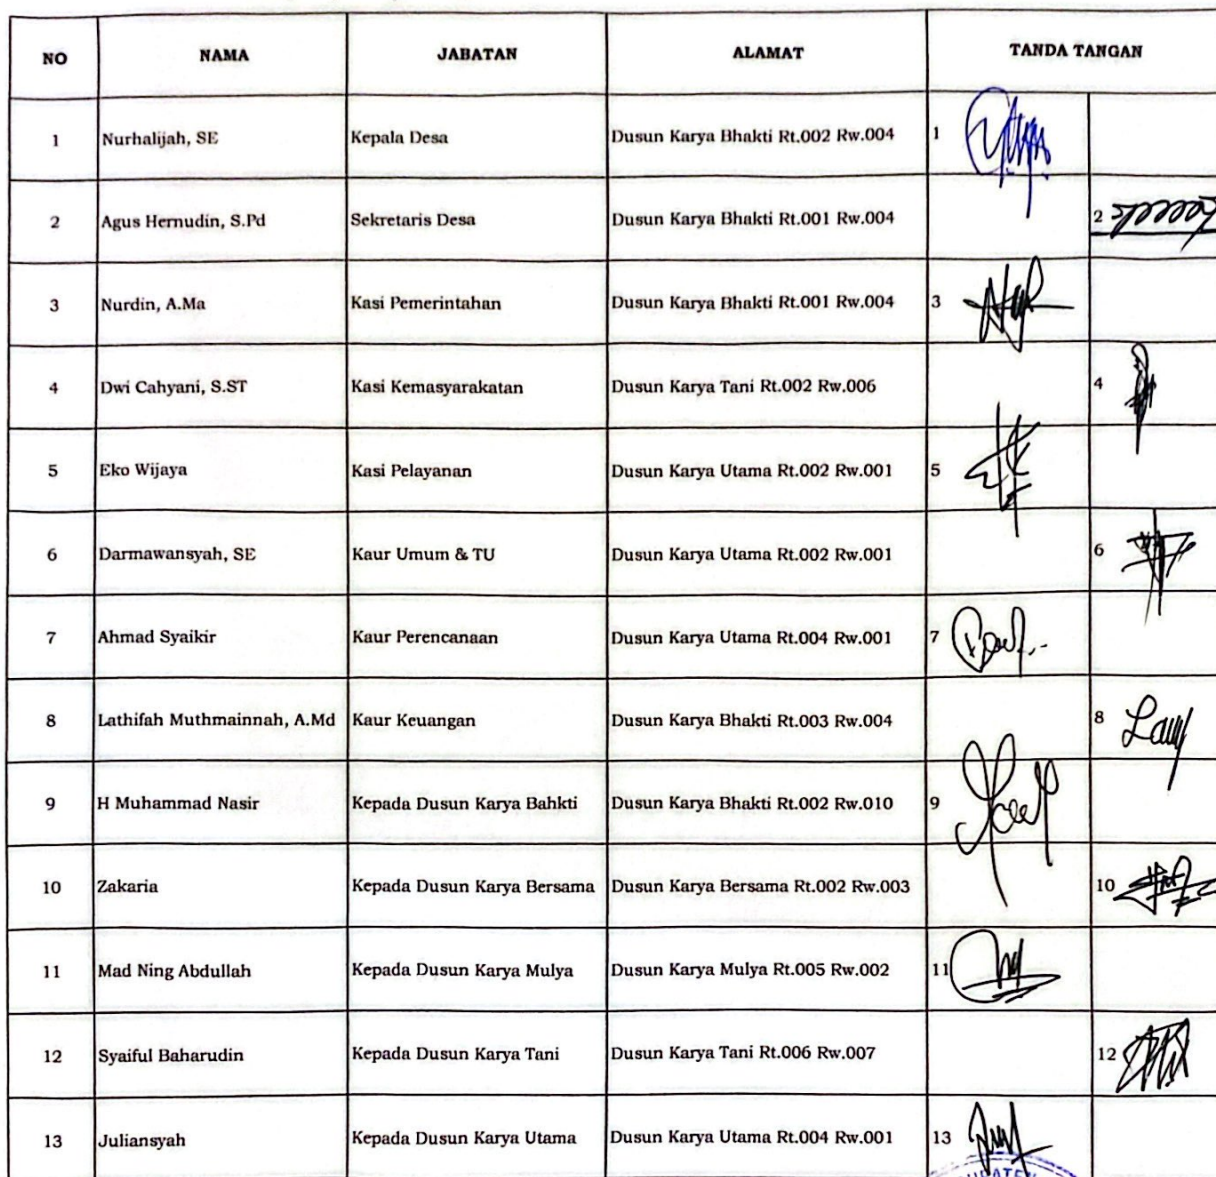 NO NAMA JABATAN ALAMAT TANDA TANGAN
1 Nurhalijah, SE Kepala Desa Dusun Karya Bhakti Rt.002 Rw.004 1
2 Agus Hernudin, S.Pd Sekretaris Desa Dusun Karya Bhakti Rt.001 Rw.004 2
3 Nurdin, A.Ma Kasi Pemerintahan Dusun Karya Bhakti Rt.001 Rw.004 3
4 Dwi Cahyani, S.ST Kasi Kemasyarakatan Dusun Karya Tani Rt.002 Rw.006 4
5 Eko Wijaya Kasi Pelayanan Dusun Karya Utama Rt.002 Rw.001 5
6 Darmawansyah, SE Kaur Umum & TU Dusun Karya Utama Rt.002 Rw.001 6
7 Ahmad Syaikir Kaur Perencanaan Dusun Karya Utama Rt.004 Rw.001 7
8 Lathifah Muthmainnah, A.Md Kaur Keuangan Dusun Karya Bhakti Rt.003 Rw.004 8
9 H Muhammad Nasir Kepada Dusun Karya Bahkti Dusun Karya Bhakti Rt.002 Rw.010 9
10 Zakaria Kepada Dusun Karya Bersama Dusun Karya Bersama Rt.002 Rw.003 10
11 Mad Ning Abdullah Kepada Dusun Karya Mulya Dusun Karya Mulya Rt.005 Rw.002 11
12 Syaiful Baharudin Kepada Dusun Karya Tani Dusun Karya Tani Rt.006 Rw.007 12
13 Juliansyah Kepada Dusun Karya Utama Dusun Karya Utama Rt.004 Rw.001 13